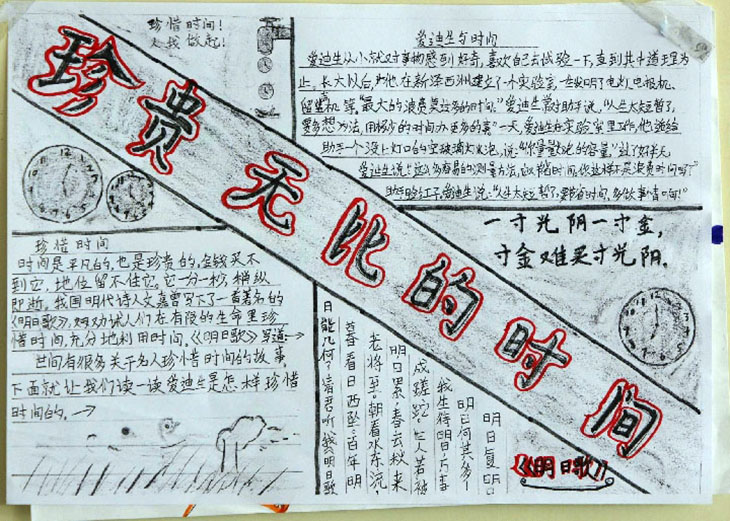 珍惜时间!
从我做起!
珍贵无比的时间
爱迪生与时间
爱迪生从小就对事物感到好奇,喜欢自己去试验一下,直到其中道理为
止。长大以后,他在新泽西洲建立了一个实验室,一生发明了电灯、电报机、
留声机等。"最大的浪费莫过的时间。"爱迪生常对助手说,"人生太短暂了,
要多想办法,用极少的时间办更多的事"一天,爱迪生在实验室里工作,他递给
助手一个没上灯口的空玻璃灯泡,说:"你量量灯泡的容量"过了好半天
爱迪生说:"这么容易的测量方法,时间,你这样不是浪费时间吗?"
助手脸红了,爱迪生说:"人生太短暂了,要节省时间,多做事情啊!"
一寸光阴一寸金,
寸金难买寸光阴.
珍惜时间
时间是平凡的,也是珍贵的,金钱买不
到它,地位留不住它。它一分一秒,稍纵
即逝。我国明代诗人文嘉曾写下了一首著名的
《明日歌》,劝人们在有限的生命里珍
惜时间,充分地利用时间,《明日歌》写道→
世间有很多关于名人珍惜时间的故事,
下面就让我们读一读爱迪生是怎样珍惜
时间的.→
《明日歌》
明日复明日
明日何其多
我生待明日万事
成蹉跎,世人若被
明日累,春去秋来
老将至。朝看水东流,
暮看日西坠。百年明
日能几何?请君听我明日歌